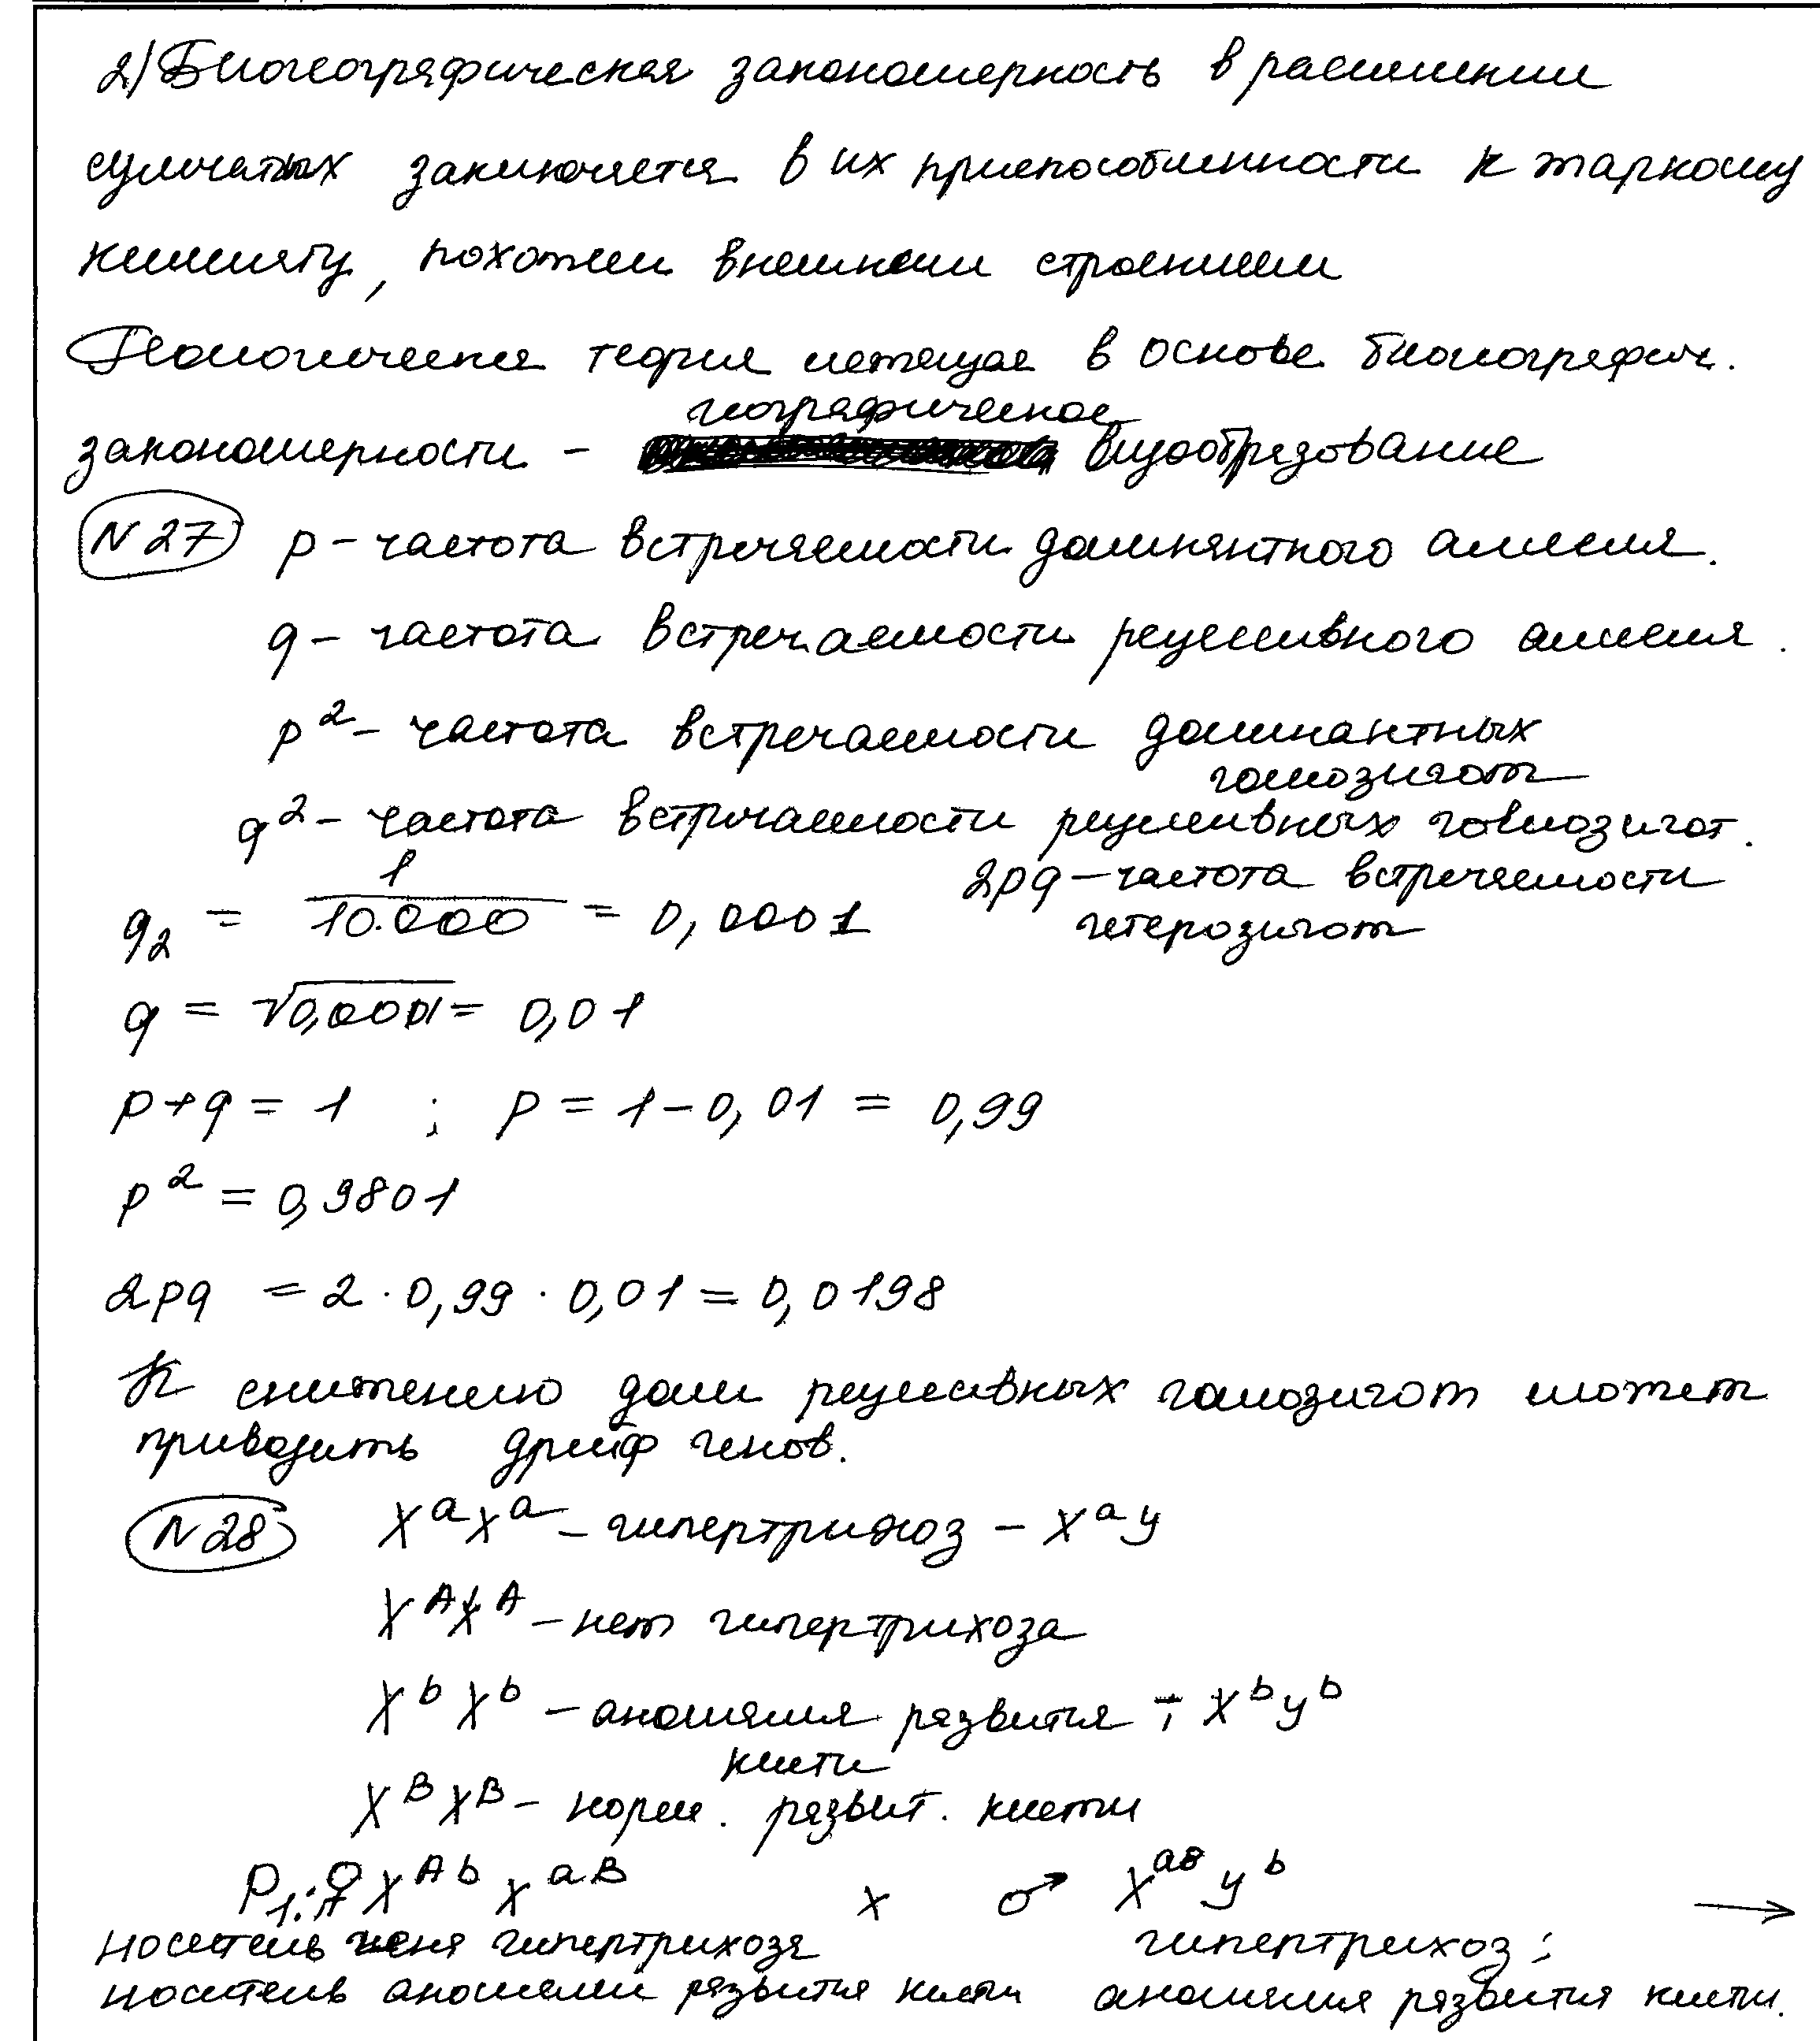 2) Биогеографическая закономерность в расселении
сумчатых заключается в их приспособленности к жаркому
климату, похожем внешнем строением
Геологическая теория лежащая в основе биогеографич.
географическое
закономерности - видообразование
N 27 p - частота встречаемости доминантного аллеля.
q - частота встречаемости рецессивного аллеля.
p² - частота встречаемости доминантных
гомозигот
q² - частота встречаемости рецессивных гомозигот.
2pq - частота встречаемости
гетерозигот
q₂ = 1/10.000 = 0,0001
q = √0,0001 = 0,01
p+q = 1 ; p = 1 - 0,01 = 0,99
p² = 0,9801
2pq = 2 · 0,99 · 0,01 = 0,0198
К снижению доли рецессивных гомозигот может
приводить дрейф генов.
N 28 XᵃXᵃ - гипертрихоз - Xᵃy
XᴬXᴬ - нет гипертрихоза
XᵇXᵇ - аномалия развития ; - Xᵇyᵇ
кисти
XᴮXᴮ - норм. развит. кисти
P₁: ♀ Xᴬᵇ Xᵃᴮ x ♂ Xᵃᵇ yᵇ →
носитель гена гипертрихоза гипертрихоз;
носитель аномалии развития кисти аномалия развития кисти.